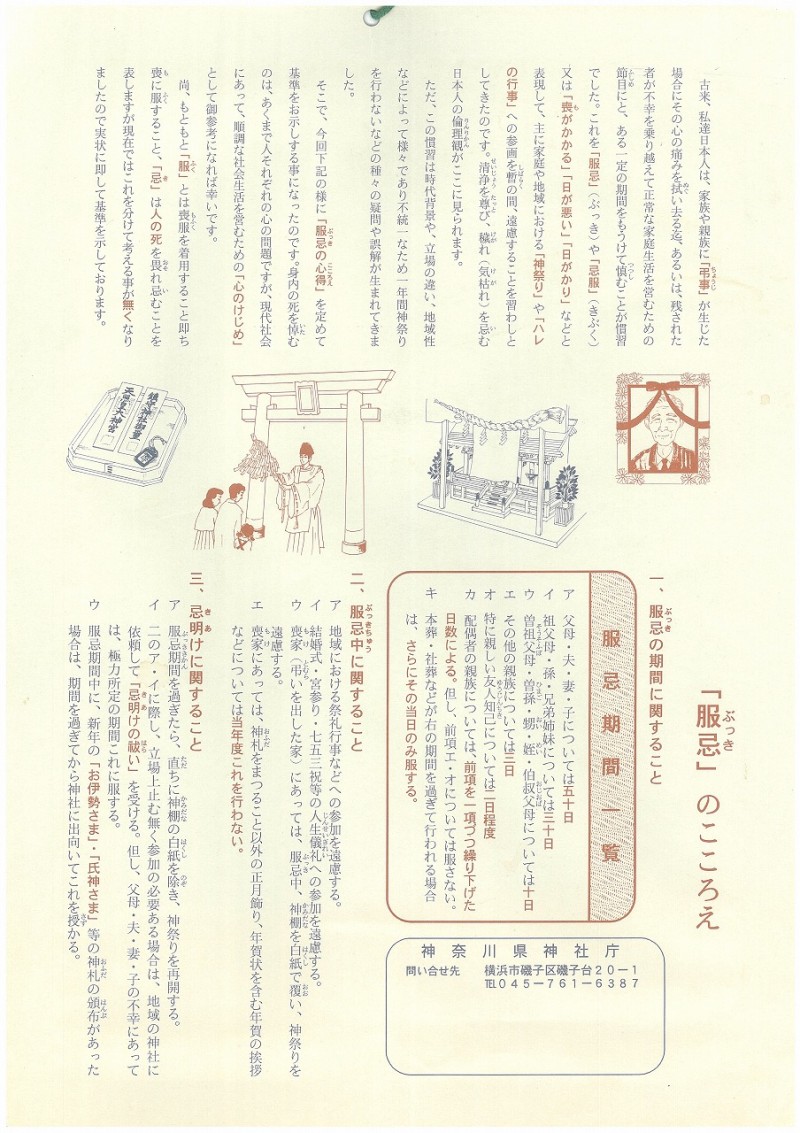 「服忌」のこころえ
古来、私達日本人は、家族や親族に「弔事」が生じた
場合にその心の痛みを拭い去る迄、あるいは、残された
者が不幸を乗り越えて正常な家庭生活を営むための
節目にと、ある一定の期間をもうけて慎むことが慣習
でした。これを「服忌」（ぶっき）や「忌服」（きぶく）
又は「喪がかかる」「日が悪い」「日がかり」などと
表現して、主に家庭や地域における「神祭り」や「ハレ
の行事」への参画を暫の間、遠慮することを習わしと
してきたのです。清浄を尊び、穢れ（気枯れ）を忌む
日本人の倫理観がここに見られます。
ただ、この慣習は時代背景や、立場の違い、地域性
などによって様々であり不統一なため一年間神祭り
を行わないなどの種々の疑問や誤解が生まれてきま
した。
そこで、今回下記の様に「服忌の心得」を定めて
基準をお示しする事になったのです。身内の死を悼む
のは、あくまで人それぞれの心の問題ですが、現代社会
にあって、順調な社会生活を営むための「心のけじめ」
として御参考になれば幸いです。
尚、もともと「服」とは喪服を着用すること即ち
喪に服すること、「忌」は人の死を畏れ忌むことを
表しますが現在ではこれを分けて考える事が無くなり
ましたので実状に即して基準を示しております。
鎮守神社御璽
天照皇大神宮
一、服忌の期間に関すること
服忌期間一覧
ア 父母・夫・妻・子については五十日
イ 祖父母・孫・兄弟姉妹については三十日
ウ 曽祖父母・曽孫・甥・姪・伯叔父母については十日
エ その他の親族については三日
オ 特に親しい友人知己については二日程度
カ 配偶者の親族については、前項を一項づつ繰り下げた
日数による。但し、前項エ・オについては服さない。
キ 本葬・社葬などが右の期間を過ぎて行われる場合
は、さらにその当日のみ服する。
二、服忌中に関すること
ア 地域における祭礼行事などへの参加を遠慮する。
イ 結婚式・宮参り・七五三祝等の人生儀礼への参加を遠慮する。
ウ 喪家（弔いを出した家）にあっては、服忌中、神棚を白紙で覆い、神祭りを
遠慮する。
エ 喪家にあっては、神札をまつること以外の正月飾り、年賀状を含む年賀の挨拶
などについては当年度これを行わない。
三、忌明けに関すること
ア 服忌期間を過ぎたら、直ちに神棚の白紙を除き、神祭りを再開する。
イ 二のア・イに際し、立場上止む無く参加の必要ある場合は、地域の神社に
依頼して「忌明けの祓い」を受ける。但し、父母・夫・妻・子の不幸にあって
は、極力所定の期間これに服する。
ウ 服忌期間中に、新年の「お伊勢さま」・「氏神さま」等の神札の頒布があった
場合は、期間を過ぎてから神社に出向いてこれを授かる。
神奈川県神社庁
問い合せ先 横浜市磯子区磯子台20－1
TEL045－761－6387